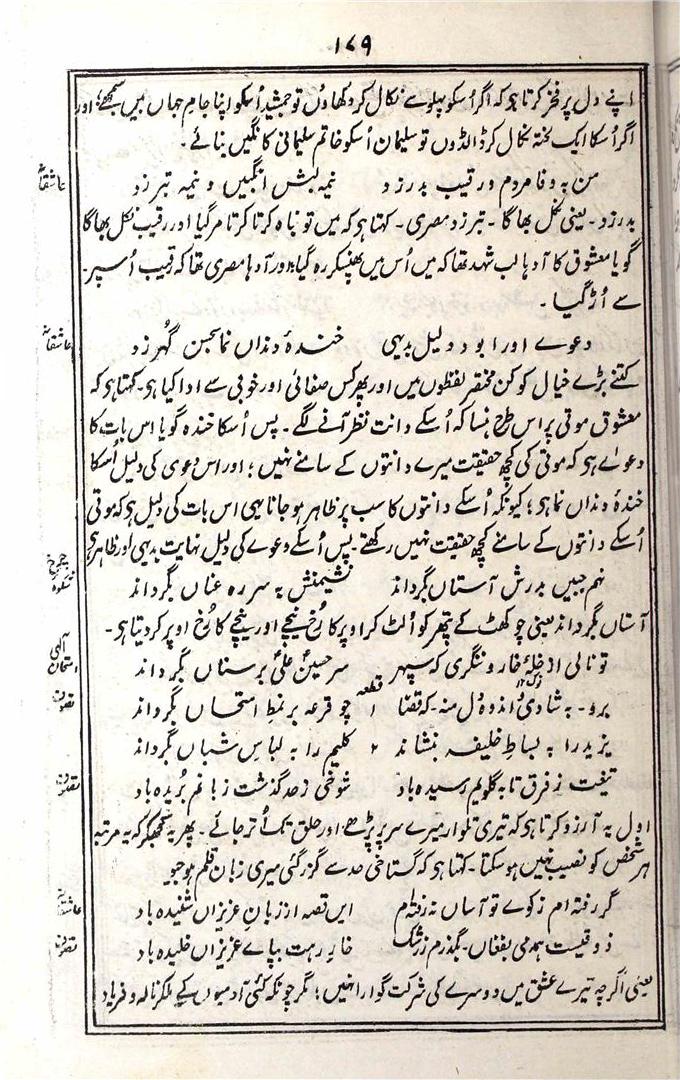 ۱۷۹
اپنے دل پر فخر کرتا ہو کہ اگر اُسکو پہلو سے نکال کر دکھاؤں تو جمشید اُسکو اپنا جامِ جہاں بیں سمجھے؛ اور
اگر اُسکا ایک لختہ نکال کر ڈالدوں تو سلیمان اُسکو خاتم سلیمانی کا نگیں بنائے۔
عاشقانہ
من بہ وفا مردم و رقیب بدر زد نیمہ لبش انگبیں و نیمہ تبرزد
بدر زد۔ یعنی نکل بھاگا۔ تبرزد مصری۔ کہتا ہو کہ میں تو نباہ کرتا کرتا مر گیا اور رقیب نکل بھاگا
گویا معشوق کا آدہا لب شہد تھا کہ میں اُس میں پھنسکر رہ گیا؛ اور آدہا مصری تھا کہ رقیب اُسپر
سے اُڑ گیا۔
عاشقانہ
دعوے اورا بود دلیل بدیہی خندۂ دنداں نما بحسن گہر زد
کتنے بڑے خیال کو کن مختصر لفظوں میں اور پھر کس صفائی اور خوبی سے ادا کیا ہو۔ کہتا ہو کہ
معشوق موتی پر اس طرح ہنسا کہ اُسکے دانت نظر آنے لگے۔ پس اُسکا خندہ گویا اس بات کا
دعوٰے ہو کہ موتی کی کچھ حقیقت میرے دانتوں کے سامنے نہیں؛ اور اس دعوی کی دلیل اُسکا
خندۂ دنداں نما ہو؛ کیونکہ اُسکے دانتوں کا سب پر ظاہر ہو جانا یہی اس بات کی دلیل ہو کہ موتی
اُسکے دانتوں کے سامنے کچھ حقیقت نہیں رکھتے۔ پس اُسکے دعوے کی دلیل نہایت بدیہی اور ظاہر ہو
شکوۂ چرخ
نہم جبیں بدرش آستاں بگرداند نشینمش بہ سر رہ عناں بگرداند
آستاں بگرداند یعنی چوکھٹ کے پتھر کو اُلٹ کر اوپر کا رُخ نیچے اور نیچے کا رُخ اوپر کر دیتا ہو۔
امتحان الٰہی
تو نالی از خلۂ خار و ننگری کہ سپہر سر حسینِؑ علیؑ بر سناں بگرداند
تصوف
قطعہ
برو۔ بہ شادی و اندوہ دل منہ۔ کہ قضا ۱ چو قرعہ بر نمط امتحاں بگرداند
یزید را بہ بساطِ خلیفہ بنشاند ۲ کلیم را بہ لباسِ شباں بگرداند
تصوف
تیغت ز فرق تا بہ گلویم رسیدہ باد شوخی ز حد گذشت زبانم بُریدہ باد
اول یہ آرزو کرتا ہو کہ تیری تلوار میرے سر پر پڑے اور حلق تک اُتر جائے۔ پھر یہ سمجھکر کہ یہ مرتبہ
ہر شخص کو نصیب نہیں ہو سکتا۔ کہتا ہو کہ گستاخی حد سے گزر گئی میری زبان قلم ہو جیو
عاشقانہ
گر رفتہ ام ز کوے تو آساں نہ رفتہ ام ایں قصہ از زبانِ عزیزاں شنیدہ باد
تصوف
ذوقیست ہمدمی بفغاں۔ بگذرم ز رشک خارِ رہت بپاے عزیزاں خلیدہ باد
یعنی اگرچہ تیرے عشق میں دوسرے کی شرکت گوارا نہیں؛ مگر چونکہ کئی آدمیوں کے ملکر نالہ و فریاد